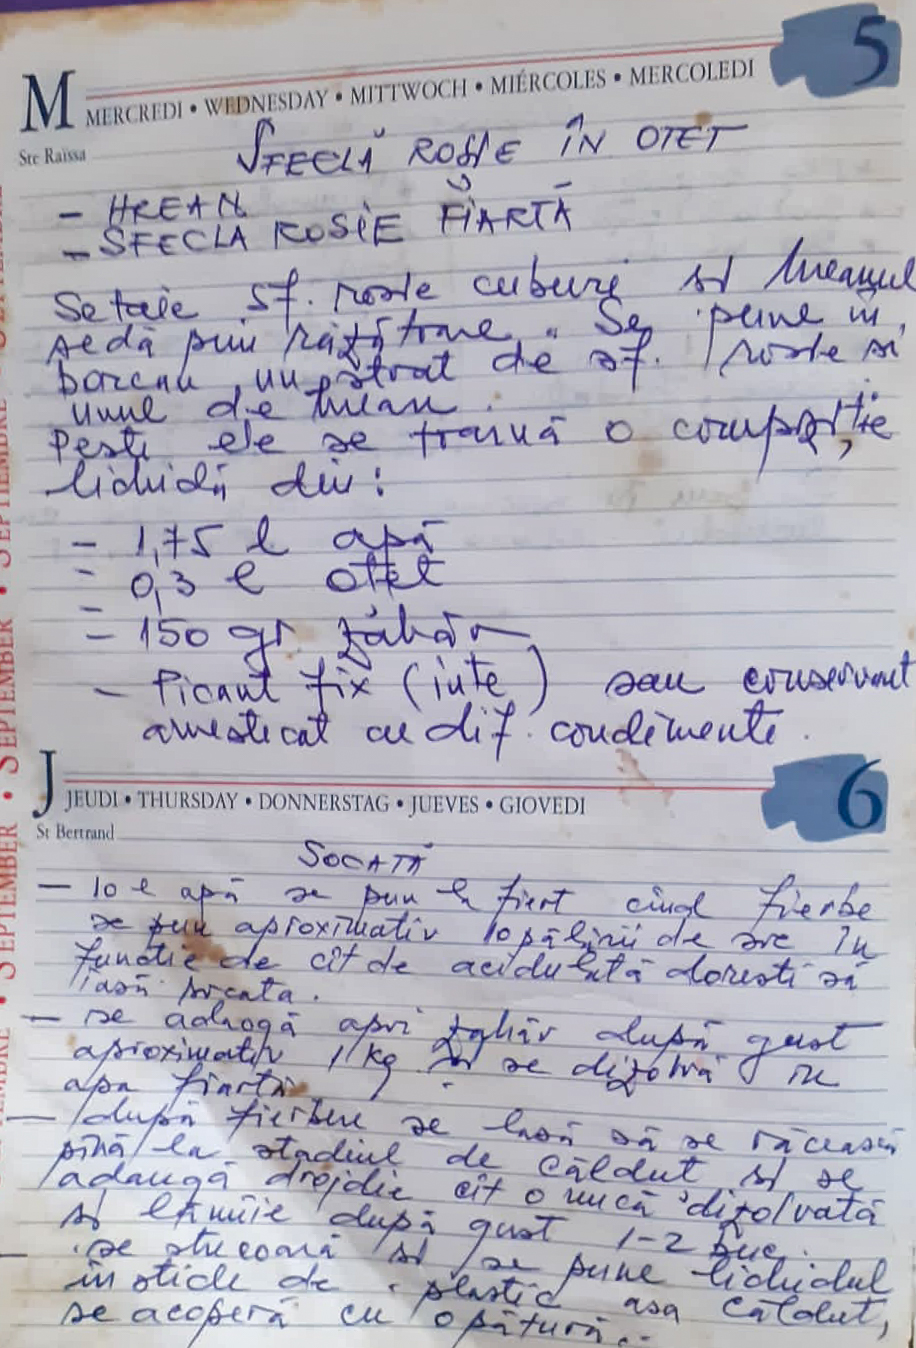 5
M MERCREDI • WEDNESDAY • MITTWOCH • MIÉRCOLES • MERCOLEDI
Ste Raïssa
SFECLĂ ROȘIE ÎN OTET
- HREAN
- SFECLA ROSIE FIARTĂ
Se taie sf. rosie cuburi si hreanul
se dă prin răzătoare. Se pune în
borcan un strat de sf. rosie si
unul de hrean.
Peste ele se toarnă o compoziție
lichidă din:
- 1,75 l apă
- 0,3 l otet
- 150 gr. zahăr
- Picant fix (iute) sau conservant
amestecat cu dif. condimente.
6
J JEUDI • THURSDAY • DONNERSTAG • JUEVES • GIOVEDI
St Bertrand
SOCATĂ
- 10 l apă se pun la fiert cînd fierbe
se pun aproximativ 10 pălării de soc în
functie de cît de acidulată doresti să
iasă socata.
- se adaogă apoi zahăr după gust
aproximativ 1 kg si se dizolvă în
apa fiartă
- după fierbere se lasă să se răcească
pînă la stadiul de căldut si se
adaugă drojdie cît o nucă dizolvată
si lămîie după gust 1-2 buc.
- se strecoară si se pune lichidul
în sticle de plastic asa căldut,
se acoperă cu o pătură.
SEPTEMBRE • SEPTEMBER •